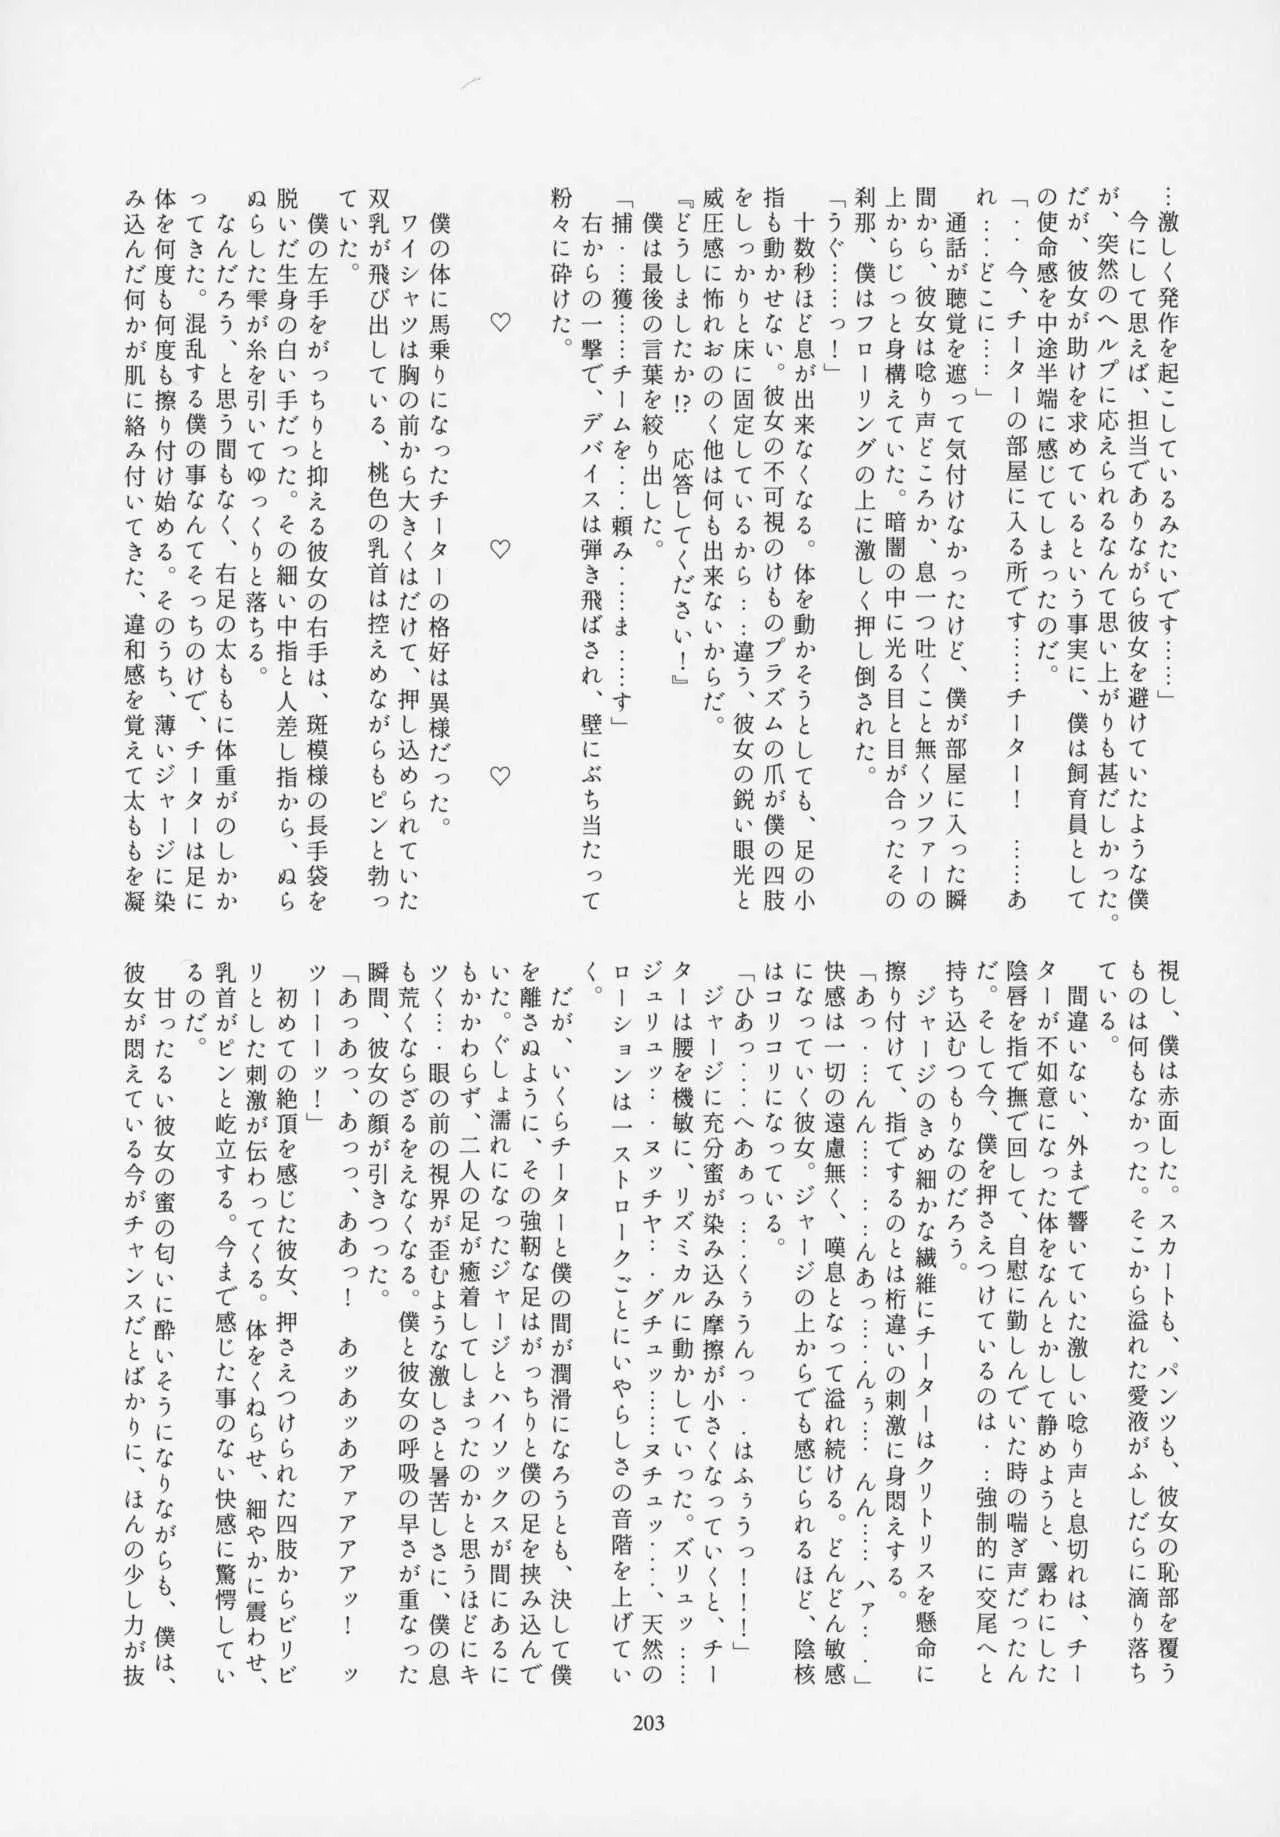 …激しく発作を起こしているみたいです……」
　今にして思えば、担当でありながら彼女を避けていたような僕
が、突然のヘルプに応えられるなんて思い上がりも甚だしかった。
だが、彼女が助けを求めているという事実に、僕は飼育員として
の使命感を中途半端に感じてしまったのだ。
「‥今、チーターの部屋に入る所です……チーター！　……あ
れ…‥どこに……」
　通話が聴覚を遮って気付けなかったけど、僕が部屋に入った瞬
間から、彼女は唸り声どころか、息一つ吐くこと無くソファーの
上からじっと身構えていた。暗闇の中に光る目と目が合ったその
刹那、僕はフローリングの上に激しく押し倒された。
「うぐ……っ！」
　十数秒ほど息が出来なくなる。体を動かそうとしても、足の小
指も動かせない。彼女の不可視のけものプラズムの爪が僕の四肢
をしっかりと床に固定しているから‥‥違う、彼女の鋭い眼光と
威圧感に怖れおののく他は何も出来ないからだ。
『どうしましたか⁉　応答してください！』
　僕は最後の言葉を絞り出した。
「捕‥‥獲……チームを‥‥頼み……ま……す」
　右からの一撃で、デバイスは弾き飛ばされ、壁にぶち当たって
粉々に砕けた。
♡　♡　♡
　僕の体に馬乗りになったチーターの格好は異様だった。
　ワイシャツは胸の前から大きくはだけて、押し込められていた
双乳が飛び出している、桃色の乳首は控えめながらもピンと勃っ
ていた。
　僕の左手をがっちりと抑える彼女の右手は、斑模様の長手袋を
脱いだ生身の白い手だった。その細い中指と人差し指から、ぬら
ぬらした雫が糸を引いてゆっくりと落ちる。
　なんだろう、と思う間もなく、右足の太ももに体重がのしかか
ってきた。混乱する僕の事なんてそっちのけで、チーターは足に
体を何度も何度も擦り付け始める。そのうち、薄いジャージに染
み込んだ何かが肌に絡み付いてきた、違和感を覚えて太ももを凝
視し、僕は赤面した。スカートも、パンツも、彼女の恥部を覆う
ものは何もなかった。そこから溢れた愛液がふしだらに滴り落ち
ている。
　間違いない、外まで響いていた激しい唸り声と息切れは、チー
ターが不如意になった体をなんとかして静めようと、露わにした
陰唇を指で撫で回して、自慰に勤しんでいた時の喘ぎ声だったん
だ。そして今、僕を押さえつけているのは‥‥強制的に交尾へと
持ち込むつもりなのだろう。
　ジャージのきめ細かな繊維にチーターはクリトリスを懸命に
擦り付けて、指でするのとは桁違いの刺激に身悶えする。
「あっ‥‥んん……‥‥んあっ……んぅ‥‥んん……ハァ‥‥」
快感は一切の遠慮無く、嘆息となって溢れ続ける。どんどん敏感
になっていく彼女。ジャージの上からでも感じられるほど、陰核
はコリコリになっている。
「ひあっ‥‥へあぁっ…‥くぅうんっ‥‥はふぅうっ！！！」
　ジャージに充分蜜が染み込み摩擦が小さくなっていくと、チー
ターは腰を機敏に、リズミカルに動かしていった。ズリュッ……
ジュリュッ‥‥ヌッチャ‥‥グチュッ……ヌチュッ‥‥、天然の
ローションは一ストロークごとにいやらしさの音階を上げてい
く。
　だが、いくらチーターと僕の間が潤滑になろうとも、決して僕
を離さぬように、その強靭な足はがっちりと僕の足を挟み込んで
いた。ぐしょ濡れになったジャージとハイソックスが間にあるに
もかかわらず、二人の足が癒着してしまったのかと思うほどにキ
ツく‥‥眼の前の視界が歪むような激しさと暑苦しさに、僕の息
も荒くならざるをえなくなる。僕と彼女の呼吸の早さが重なった
瞬間、彼女の顔が引きつった。
「あっあっ、あっっ、ああっ！　あッあッあァァァアッ！　ッ
ツーーーッ！」
　初めての絶頂を感じた彼女、押さえつけられた四肢からビリビ
リとした刺激が伝わってくる。体をくねらせ、細やかに震わせ、
乳首がピンと屹立する。今まで感じた事のない快感に驚愕してい
るのだ。
　甘ったるい彼女の蜜の匂いに酔いそうになりながらも、僕は、
彼女が悶えている今がチャンスだとばかりに、ほんの少し力が抜
203